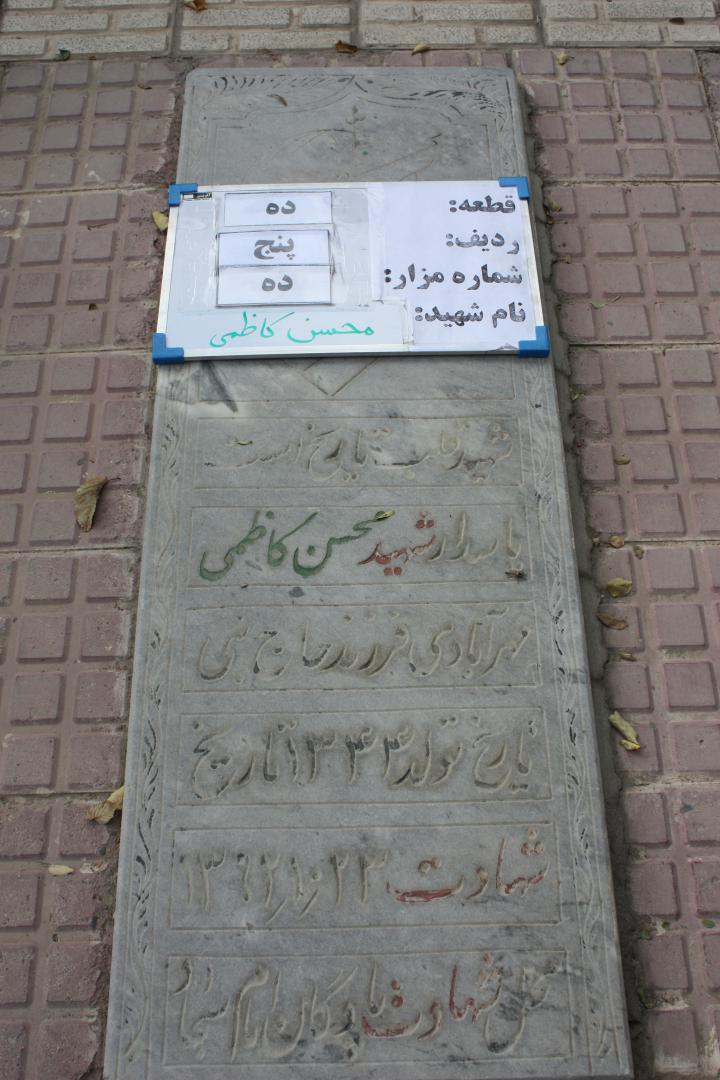 قطعه: ده
ردیف: پنج
شماره مزار: ده
نام شهید: محسن کاظمی
شهید قلب تاریخ است
پاسدار شهید محسن کاظمی
مهرآبادی فرزند حاج نبی
تاریخ تولد ۱۳۴۴ تاریخ
شهادت ۲۳ ۱۳۶۲
محل شهادت پادگان امام سجاد